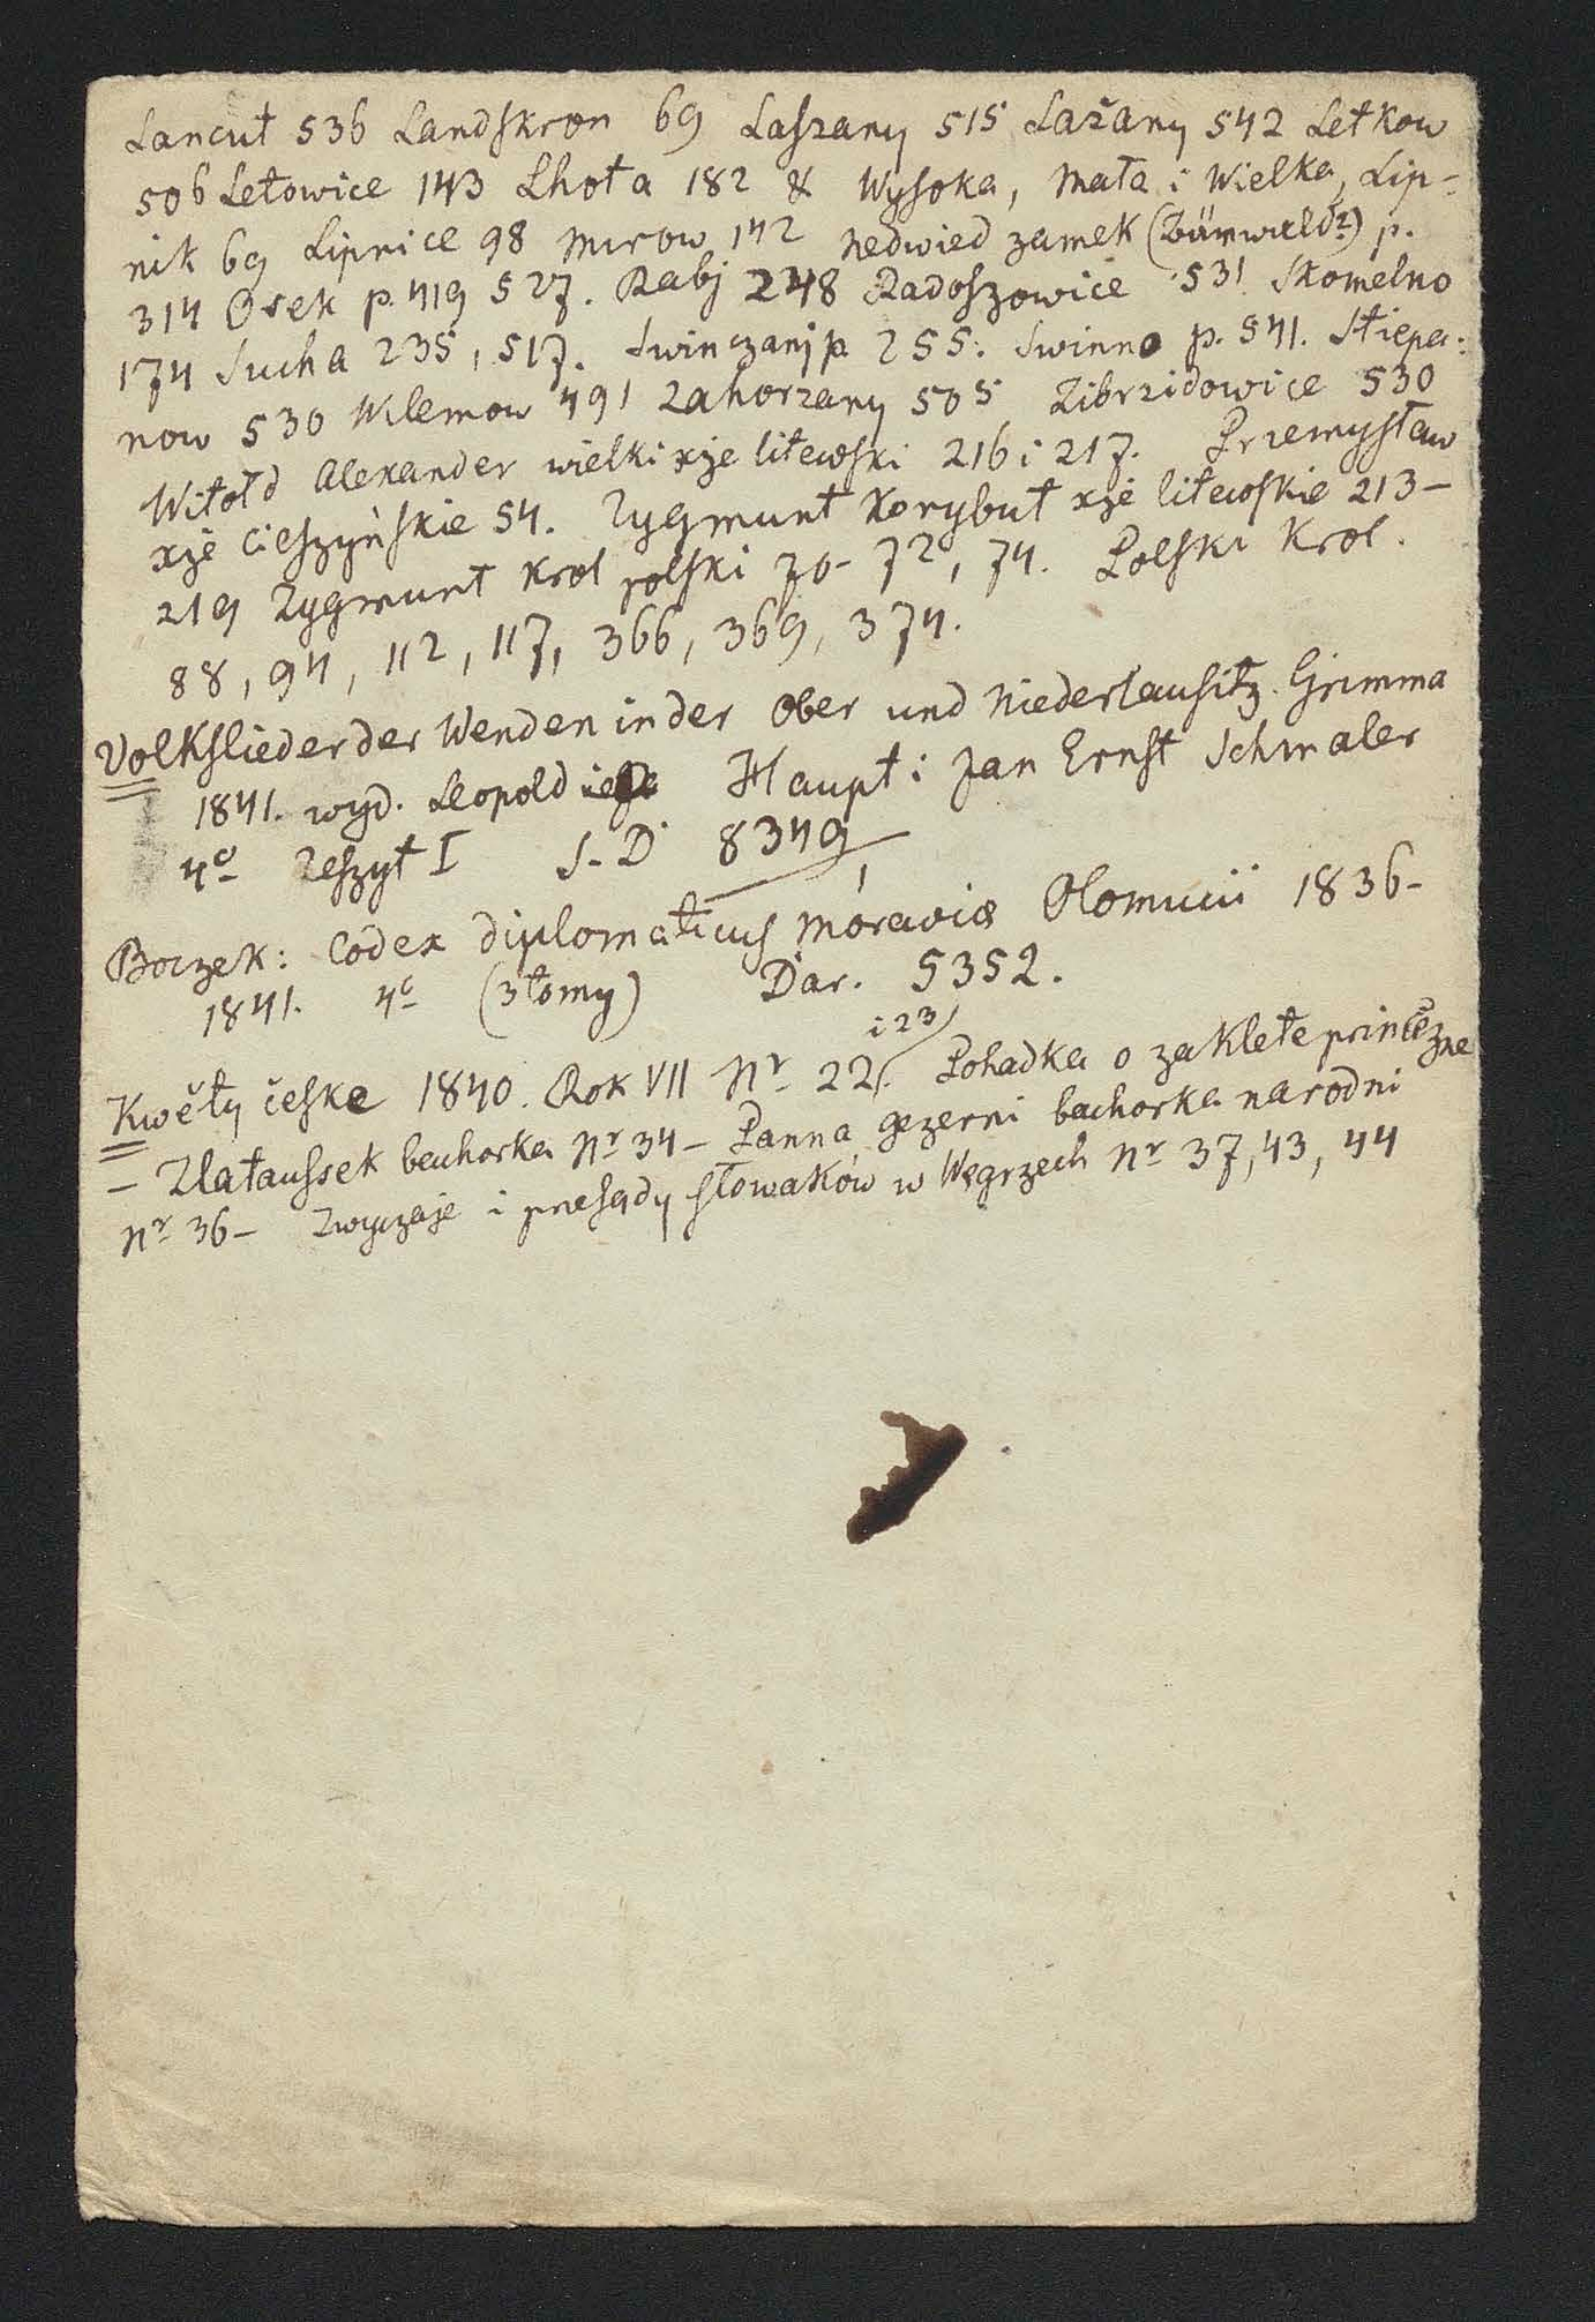 Lancut 536 Landskron 69 Laszany 515 Lažany 542 Letkow
506 Letowice 143 Lhota 182 & Wysoka, Mała i Wielka, Lip-
nik 69 Lipnice 98 Mirow 142 Nedwied zamek (Bärnwald?) p.
314 Osek p. 419 527. Rabj 248 Radoszowice 531 Skomelno
174 Sucha 235, 517. Swinczanj p. 255. Swinno p. 541. Stiepa:
now 530 Wilemow 491 Zahorzany 505 Zibrzidowice 530
Witołd Alexander wielki xże litewski 216 i 217. Przemysław
xże Cieszyńskie 54. Zygmunt Korybut xże litewskie 213-
219 Zygmunt Krol polski 70-72, 74. Polski Krol.
88, 94, 112, 117, 366, 369, 374.
Volkslieder der Wenden in der Ober und Niederlausitz. Grimma
1841. wyd. Leopold Haupt i Jan Ernst Schmaler
4º Zeszyt I S.D 8349
Boczek: Codex diplomaticus Moraviæ Olomucii 1836-
1841. 4º (3 tomy) Dar. 5352.
i 23
Kwěty česke 1840. Rok VII Nr 22. Pohadka o zaklete princězne
– Zlataussek bachorka Nr 34 – Panna gezerni bachorka narodni
Nr 36 – Zwyczaje i przesądy słowaków w Węgrzech Nr 37, 43, 44